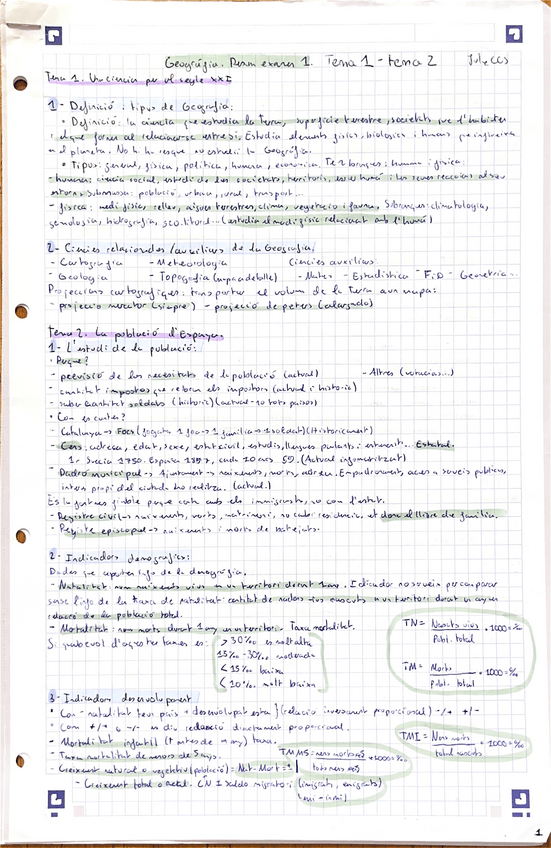 Geografia. Resum examen 1. Tema 1 - tema 2
Tema 1. Una ciencia per al segle XXI
1- Definició i tipus de Geografia:
• Definició: la ciencia que estudia la Terra, superficie terrestre, societats que l'habiten
i el que formen al relacionar-se entre si. Estudia elements físics, biologics i humans que
en el planeta. No hi ha res que no estudiï la Geografia.
• Tipus: general, física, política, humana, económica. Te 2 branques: humana i física:
- humana: ciencia social, estudi de les societats, territoris, i les seues al seu
entorn. Subbranques: població, urbana, rural, transport...
- física: medi físic, relleu, aigües terrestres, clima, vegetació i fauna. Subranques: climatologia,
hidrografia, geo.litoral... (estudia el medi físic relacionat amb l'humà)
2- Ciencies relacionades/auxiliars de la Geografia
- Cartografia - Meteorologia Ciencies auxiliars:
- Geologia - Topografia (mapa a detalle) - Mates - Estadística - FiD - Geometria...
Projeccions cartografiques: transportar el volum de la Terra a un mapa:
- projecció mercator (siempre) - projecció de peters (alargado)
Tema 2. La població d'Espanya.
1- L'estudi de la població:
• Perque?
- previsió de les necesitats de la població (actual) - Altres (votacions...)
- cantitat impostos que rebran els (actual i historic)
- saber cantitat soldats (historic) (actual - no tots paisos)
• Com es conter?
- Catalunya → Focs (fogatge 1 foc → 1 familia → 1 soldat) (Historicament)
- Cens: adreça, edat, sexe, estat civil, estudis, llengues parlants i Estatal.
1r Suecia 1750. Espanya 1857, cada 10 anys (Actual informatitzat)
- Padró municipal → Ajuntament → naixements, morts, adreça. Empadronament, acces a serveis publics,
interes propi del ciutadà ho realitza. (actual)
Es la font mes fiable perque conta amb els immigrants, no com l'estat.
- Registre civil → naixements, morts, matrimoni, no canvi residencia, et dona el llibre de familia.
- Registre episcopal → naixements i morts de batejats.
2- Indicadors demografics:
Dades que aporten info de la demografia.
- Natalitat: num naixements vius en un territori durant 1 any. Indicador no serveix per comparar
sense l'info de la taxa de natalitat: cantitat de nadons vius nascuts en un territori durant un any en
relació de la població total.
- Mortalitat: num morts durant 1 any en un territori. Taxa mortalitat.
Si qualsevol d'aquestes taxes es:
> 30‰ es molt alta
15‰ - 30‰ moderada
< 15‰ baixa
< 10‰ molt baixa
TN = Nascuts vius / Pobl. total · 1000 = ‰
TM = Morts / Pobl. total · 1000 = ‰
3- Indicadors desenvolupament
• Com - natalitat té un país + desenvolupat esta } (relacio inversament proporcional) -/+ +/-
• Com +/+ o -/- es diu relació directament proporcional.
- Mortalitat infantil (1 antes de 1 any) taxa.
TMI = Nens morts / total nascuts · 1000 = ‰
- Taxa mortalitat de menors de 5 anys. TMM5 = nens morts <5 / tots nens <5 · 1000 = ‰
- Creixement natural o vegetatiu (població) = Nat - Mort = 1
- Creixement total o real. CN ± saldo migratori (inmigrats, emigrats)
1